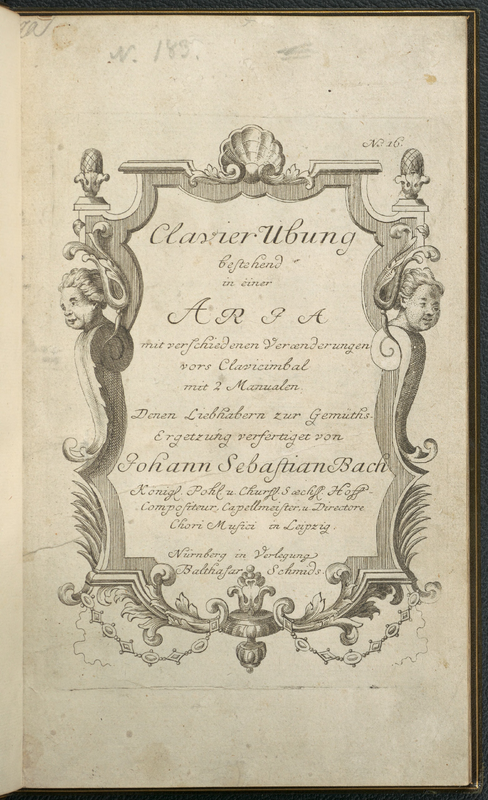 N. 183.
No. 16.
Clavier Ubung
bestehend
in einer
ARIA
mit verschiedenen Veraenderungen
vors Clavicimbal
mit 2 Manualen.
Denen Liebhabern zur Gemüths-
Ergetzung verfertiget von
Johann Sebastian Bach
Königl. Pohl. u. Churfl. Sæchss. Hoff-
Compositeur, Capellmeister, u. Directore
Chori Musici in Leipzig.
Nürnberg in Verlegung
Balthasar Schmids